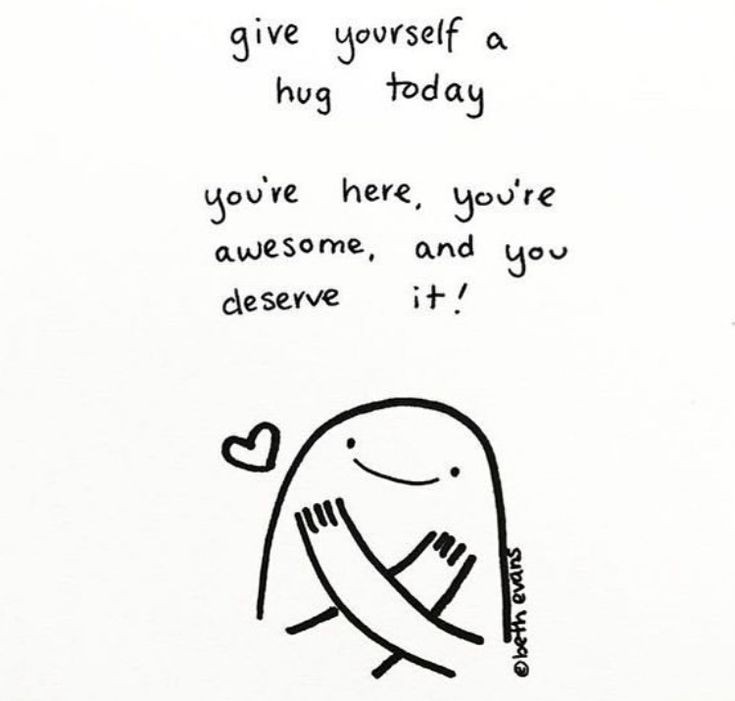 give yourself a
hug today
you're here, you're
awesome, and you
deserve it!
©beth evans